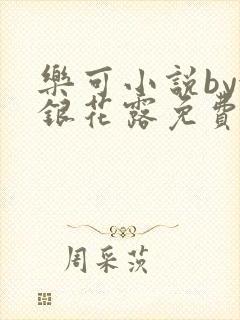 樂可小説by
銀花露免費
周采茨